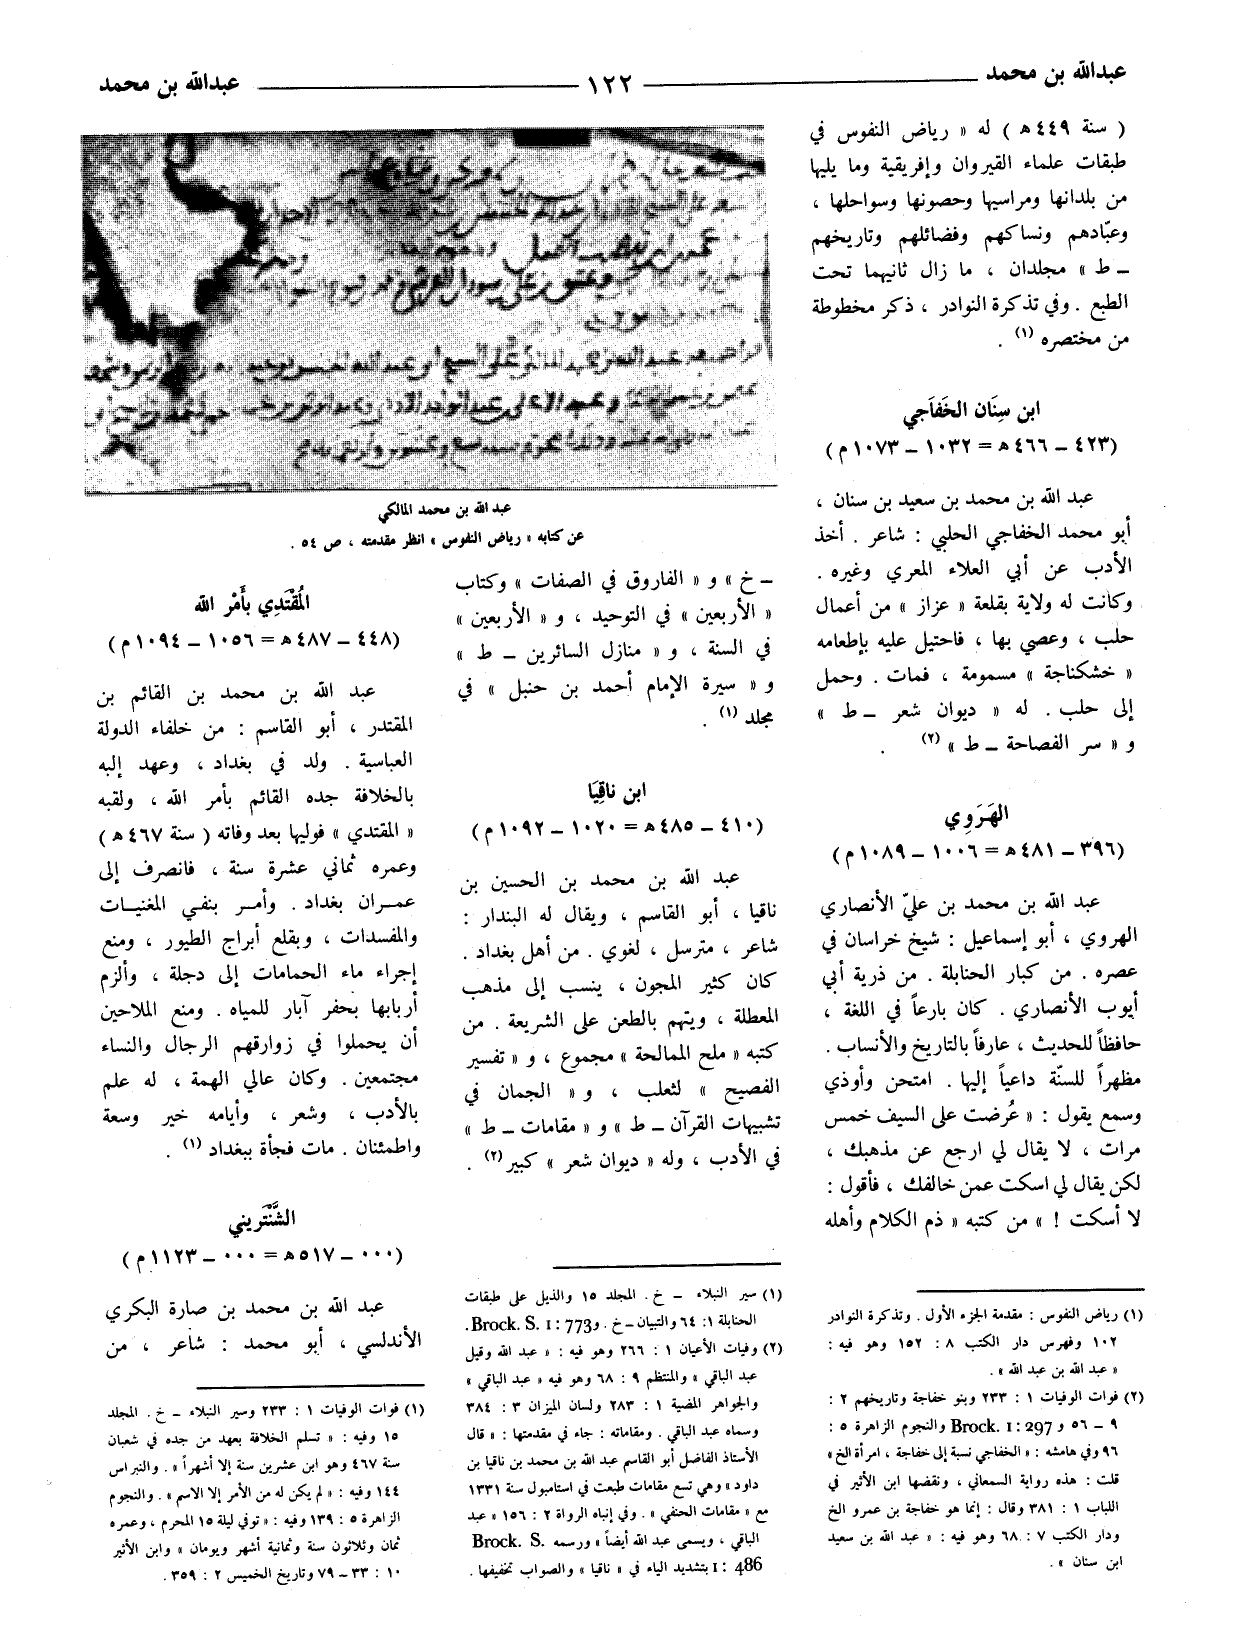 عبدالله بن محمد ١٢٢ عبدالله بن محمد
( سنة ٤٤٩ ه‍ ) له « رياض النفوس في
طبقات علماء القيروان وإفريقية وما يليها
من بلدانها ومراسيها وحصونها وسواحلها ،
وعبّادهم ونساكهم وفضائلهم وتاريخهم
ـ ط » مجلدان ، ما زال ثانيهما تحت
الطبع . وفي تذكرة النوادر ، ذكر مخطوطة
من مختصره (١) .
ابن سِنَان الخَفَاجي
(٤٢٣ ـ ٤٦٦ ه‍ = ١٠٣٢ ـ ١٠٧٣ م)
عبد الله بن محمد بن سعيد بن سنان ،
أبو محمد الخفاجي الحلبي : شاعر . أخذ
الأدب عن أبي العلاء المعري وغيره .
وكانت له ولاية بقلعة « عزاز » من أعمال
حلب ، وعصي بها ، فاحتيل عليه بإطعامه
« خشكناجة » مسمومة ، فمات . وحمل
إلى حلب . له « ديوان شعر ـ ط »
و « سر الفصاحة ـ ط » (٢) .
الهَرَوِي
(٣٩٦ ـ ٤٨١ ه‍ = ١٠٠٦ ـ ١٠٨٩ م)
عبد الله بن محمد بن عليّ الأنصاري
الهروي ، أبو إسماعيل : شيخ خراسان في
عصره . من كبار الحنابلة . من ذرية أبي
أيوب الأنصاري . كان بارعاً في اللغة ،
حافظاً للحديث ، عارفاً بالتاريخ والأنساب .
مظهراً للسنّة داعياً إليها . امتحن وأوذي
وسمع يقول : « عُرضت على السيف خمس
مرات ، لا يقال لي ارجع عن مذهبك ،
لكن يقال لي اسكت عمن خالفك ، فأقول :
لا أسكت ! » من كتبه « ذم الكلام وأهله
(١) رياض النفوس : مقدمة الجزء الأول . وتذكرة النوادر
١٠٢ وفهرس دار الكتب ٨ : ١٥٢ وهو فيه :
« عبد الله بن عبد الله » .
(٢) فوات الوفيات ١ : ٢٣٣ وبنو خفاجة وتاريخهم ٢ :
٩ ـ ٥٦ و Brock. I : 297 والنجوم الزاهرة ٥ :
٩٦ وفي هامشه : « الخفاجي نسبة إلى خفاجة ، امرأة الخ »
قلت : هذه رواية السمعاني ، ونقضها ابن الأثير في
اللباب ١ : ٣٨١ وقال : إنما هو خفاجة بن عمرو الخ
ودار الكتب ٧ : ٦٨ وهو فيه : « عبد الله بن سعيد
ابن سنان » .
عبد الله بن محمد المالكي
عن كتابه « رياض النفوس » انظر مقدمته ، ص ٥٤ .
ـ خ » و « الفاروق في الصفات » وكتاب
« الأربعين » في التوحيد ، و « الأربعين »
في السنة ، و « منازل السائرين ـ ط »
و « سيرة الإمام أحمد بن حنبل » في
مجلد (١) .
ابن ناقِيَا
(٤١٠ ـ ٤٨٥ ه‍ = ١٠٢٠ ـ ١٠٩٢ م)
عبد الله بن محمد بن الحسين بن
ناقيا ، أبو القاسم ، ويقال له البندار :
شاعر ، مترسل ، لغوي . من أهل بغداد .
كان كثير المجون ، ينسب إلى مذهب
المعطلة ، ويتهم بالطعن على الشريعة . من
كتبه « ملح الممالحة » مجموع ، و « تفسير
الفصيح » لثعلب ، و « الجمان في
تشبيهات القرآن ـ ط » و « مقامات ـ ط »
في الأدب ، وله « ديوان شعر » كبير (٢) .
(١) سير النبلاء ـ خ . المجلد ١٥ والذيل على طبقات
الحنابلة ١ : ٦٤ والتبيان ـ خ . و Brock. S. I : 773.
(٢) وفيات الأعيان ١ : ٢٦٦ وهو فيه : « عبد الله وقيل
عبد الباقي » والمنتظم ٩ : ٦٨ وهو فيه « عبد الباقي »
والجواهر المضية ١ : ٢٨٣ ولسان الميزان ٣ : ٣٨٤
وسماه عبد الباقي . ومقاماته : جاء في مقدمتها : « قال
الأستاذ الفاضل أبو القاسم عبد الله بن محمد بن ناقيا بن
داود » وهي تسع مقامات طبعت في استامبول سنة ١٣٣١
مع « مقامات الحنفي » . وفي إنباه الرواة ٢ : ١٥٦ « عبد
الباقي ، ويسمى عبد الله أيضاً » ورسمه Brock. S.
I : 486 بتشديد الياء في « ناقيا » والصواب تخفيفها .
المُقْتَدِي بأَمْر الله
(٤٤٨ ـ ٤٨٧ ه‍ = ١٠٥٦ ـ ١٠٩٤ م)
عبد الله بن محمد بن القائم بن
المقتدر ، أبو القاسم : من خلفاء الدولة
العباسية . ولد في بغداد ، وعهد إليه
بالخلافة جده القائم بأمر الله ، ولقبه
« المقتدي » فوليها بعد وفاته ( سنة ٤٦٧ ه‍ )
وعمره ثماني عشرة سنة ، فانصرف إلى
عمران بغداد . وأمر بنفي المغنيات
والمفسدات ، وبقلع أبراج الطيور ، ومنع
إجراء ماء الحمامات إلى دجلة ، وألزم
أربابها بحفر آبار للمياه . ومنع الملاحين
أن يحملوا في زوارقهم الرجال والنساء
مجتمعين . وكان عالي الهمة ، له علم
بالأدب ، وشعر ، وأيامه خير وسعة
واطمئنان . مات فجأة ببغداد (١) .
الشَّنْتَريني
(٠٠٠ ـ ٥١٧ ه‍ = ٠٠٠ ـ ١١٢٣ م)
عبد الله بن محمد بن صارة البكري
الأندلسي ، أبو محمد : شاعر ، من
(١) فوات الوفيات ١ : ٢٣٣ وسير النبلاء ـ خ . المجلد
١٥ وفيه : « تسلم الخلافة بعهد من جده في شعبان
سنة ٤٦٧ وهو ابن عشرين سنة إلا أشهراً » . والنبراس
١٤٤ وفيه : « لم يكن له من الأمر إلا الاسم » . والنجوم
الزاهرة ٥ : ١٣٩ وفيه : « توفي ليلة ١٥ المحرم ، وعمره
ثمان وثلاثون سنة وثمانية أشهر ويومان » وابن الأثير
١٠ : ٣٣ ـ ٧٩ وتاريخ الخميس ٢ : ٣٥٩ .